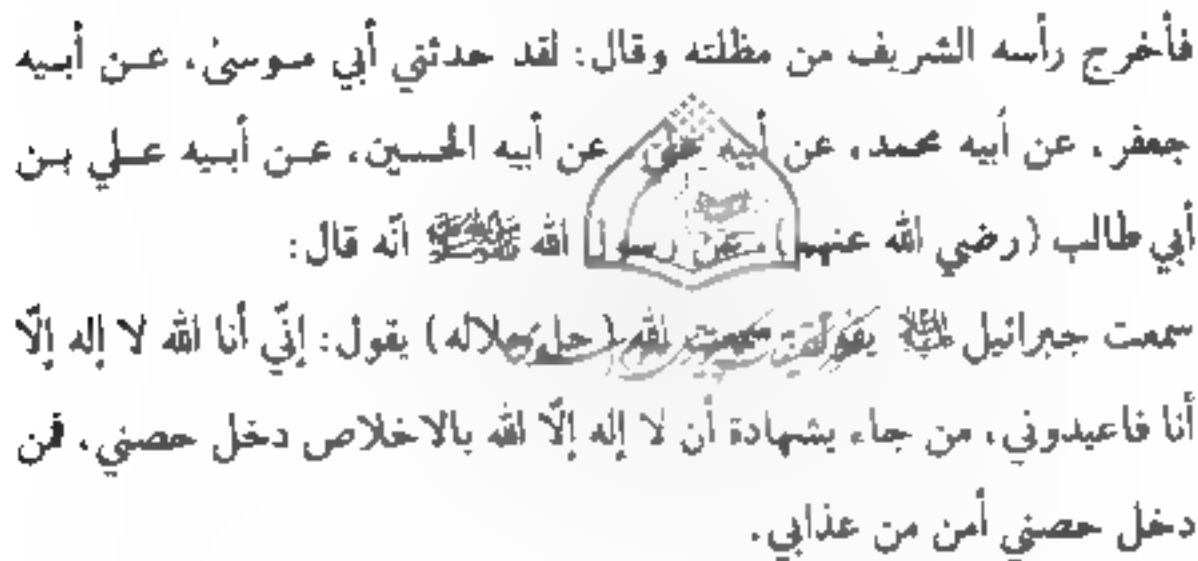 فأخرج رأسه الشريف من مظلته وقال: لقد حدثتي أبي موسىٰ، عن أبيه
جعفر، عن أبيه محمد، عن أبيه علي، عن أبيه الحسين، عن أبيه علي بن
أبي طالب (رضي الله عنهم) عن رسول الله ﷺ انّه قال:
سمعت جبرائيل يقول: سمعت الله (جل جلاله) يقول: إنّي أنا الله لا إله إلّا
أنا فاعبدوني، من جاء بشهادة أن لا إله إلّا الله بالاخلاص دخل حصني، فمن
دخل حصني أمن من عذابي.